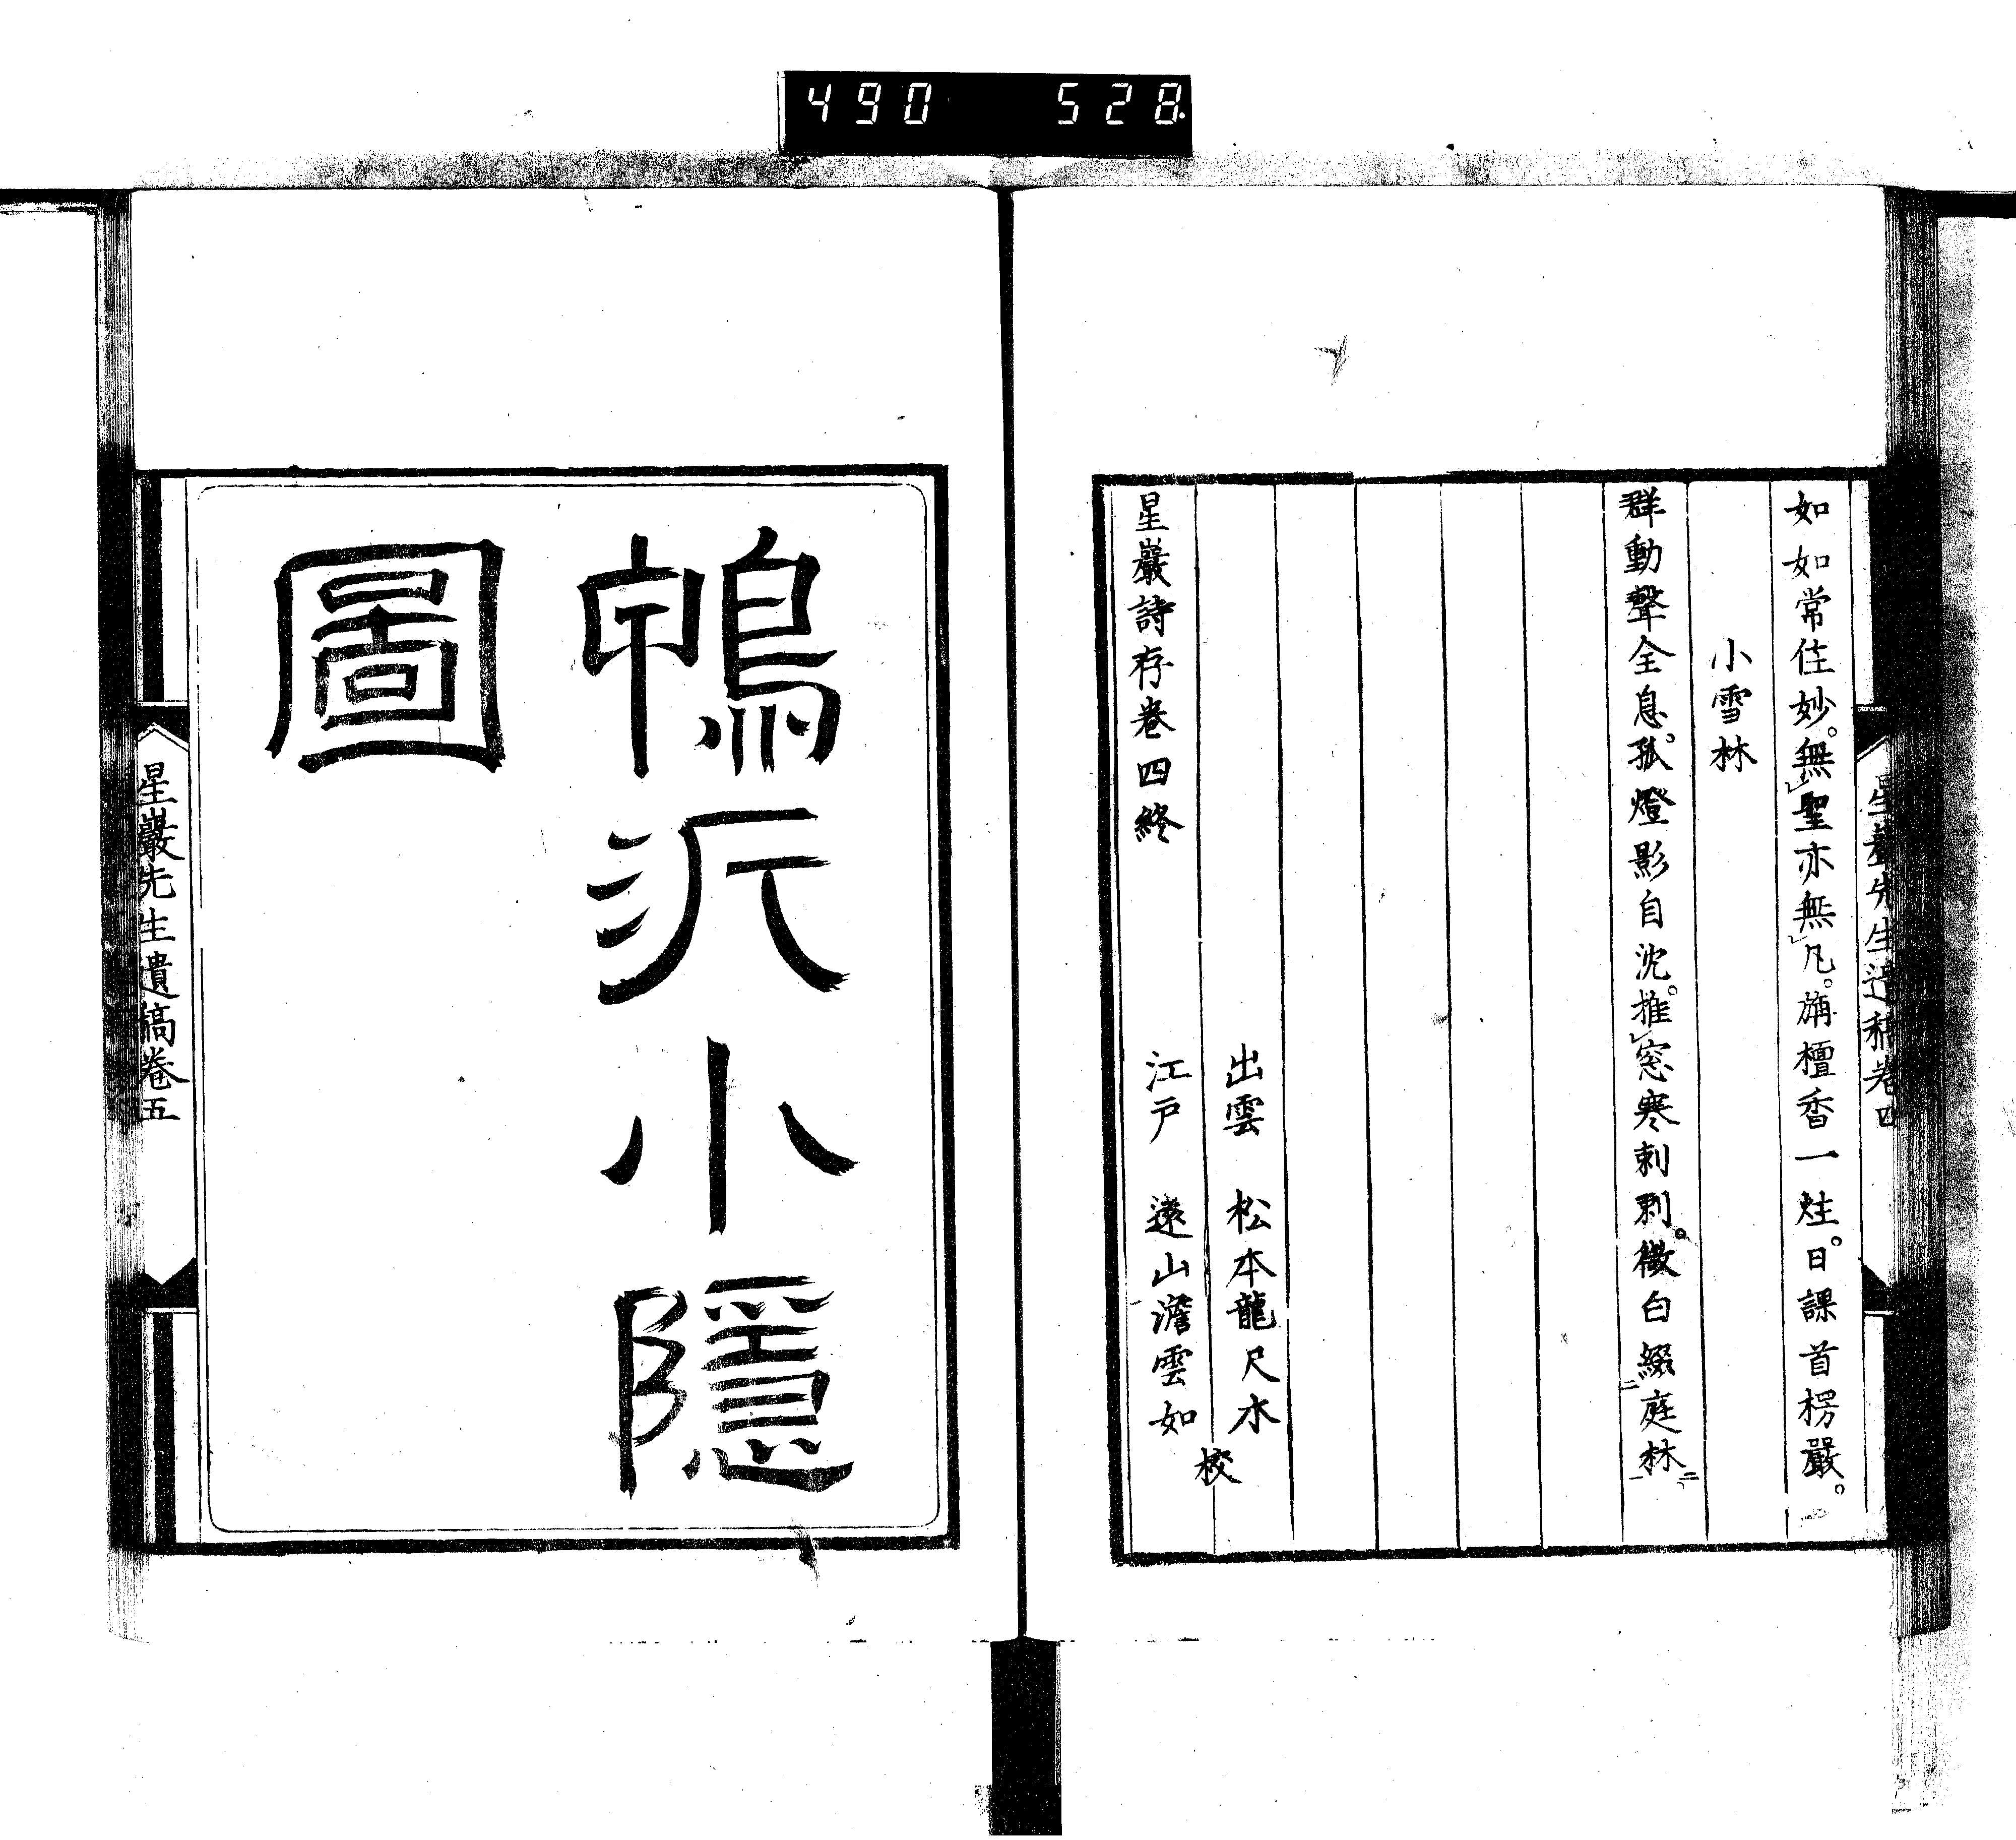 490 528
星巖先生遺稿卷四
如如常住妙。無聖亦無凡。旃檀香一炷。日課首楞嚴。
小雪林
群動聲全息。孤燈影自沈。推窓寒刺刺。微白綴庭林
出雲 松本龍尺水
江戸 遠山澹雲如
校
星巖詩存卷四終
鴨沂小隱
圖
星巖先生遺稿卷五